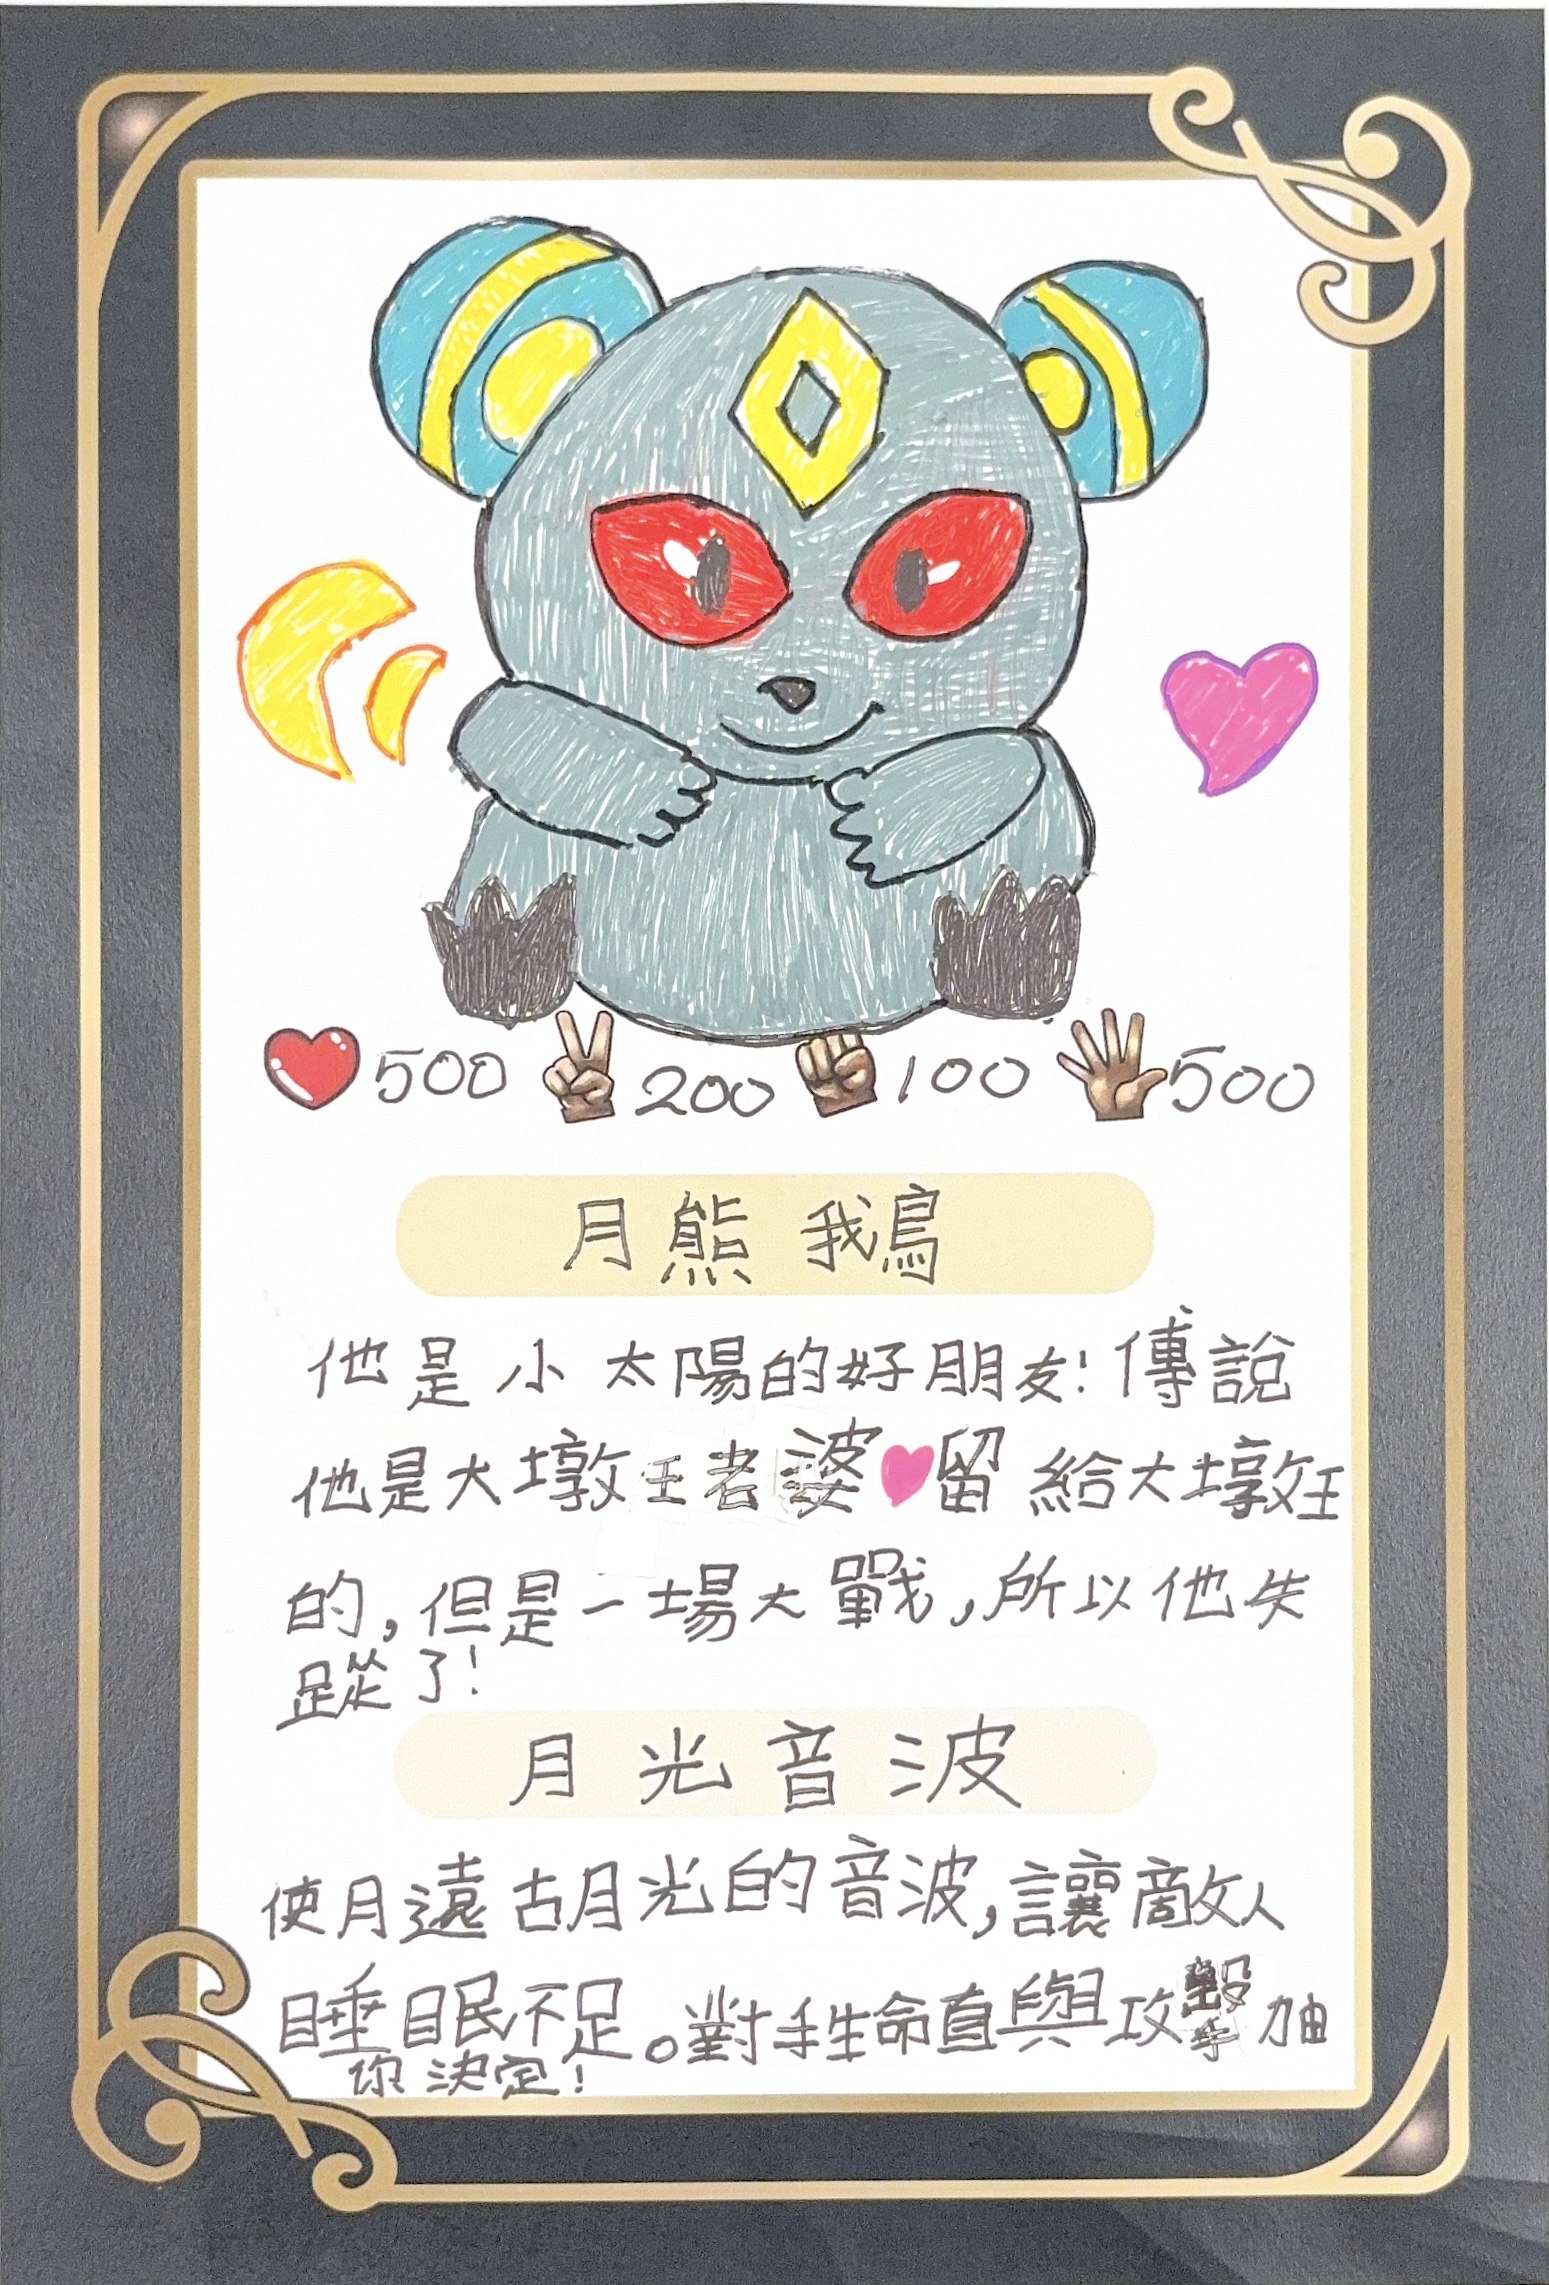 500 200 100 500
月熊 鵝
他是小太陽的好朋友!傳說
他是大墩王老婆留給大墩王
的,但是一場大戰,所以他失
蹤了!
月光音波
使月遠古月光的音波,讓敵人
睡眠不足。對手生命直與攻擊加
你決定!